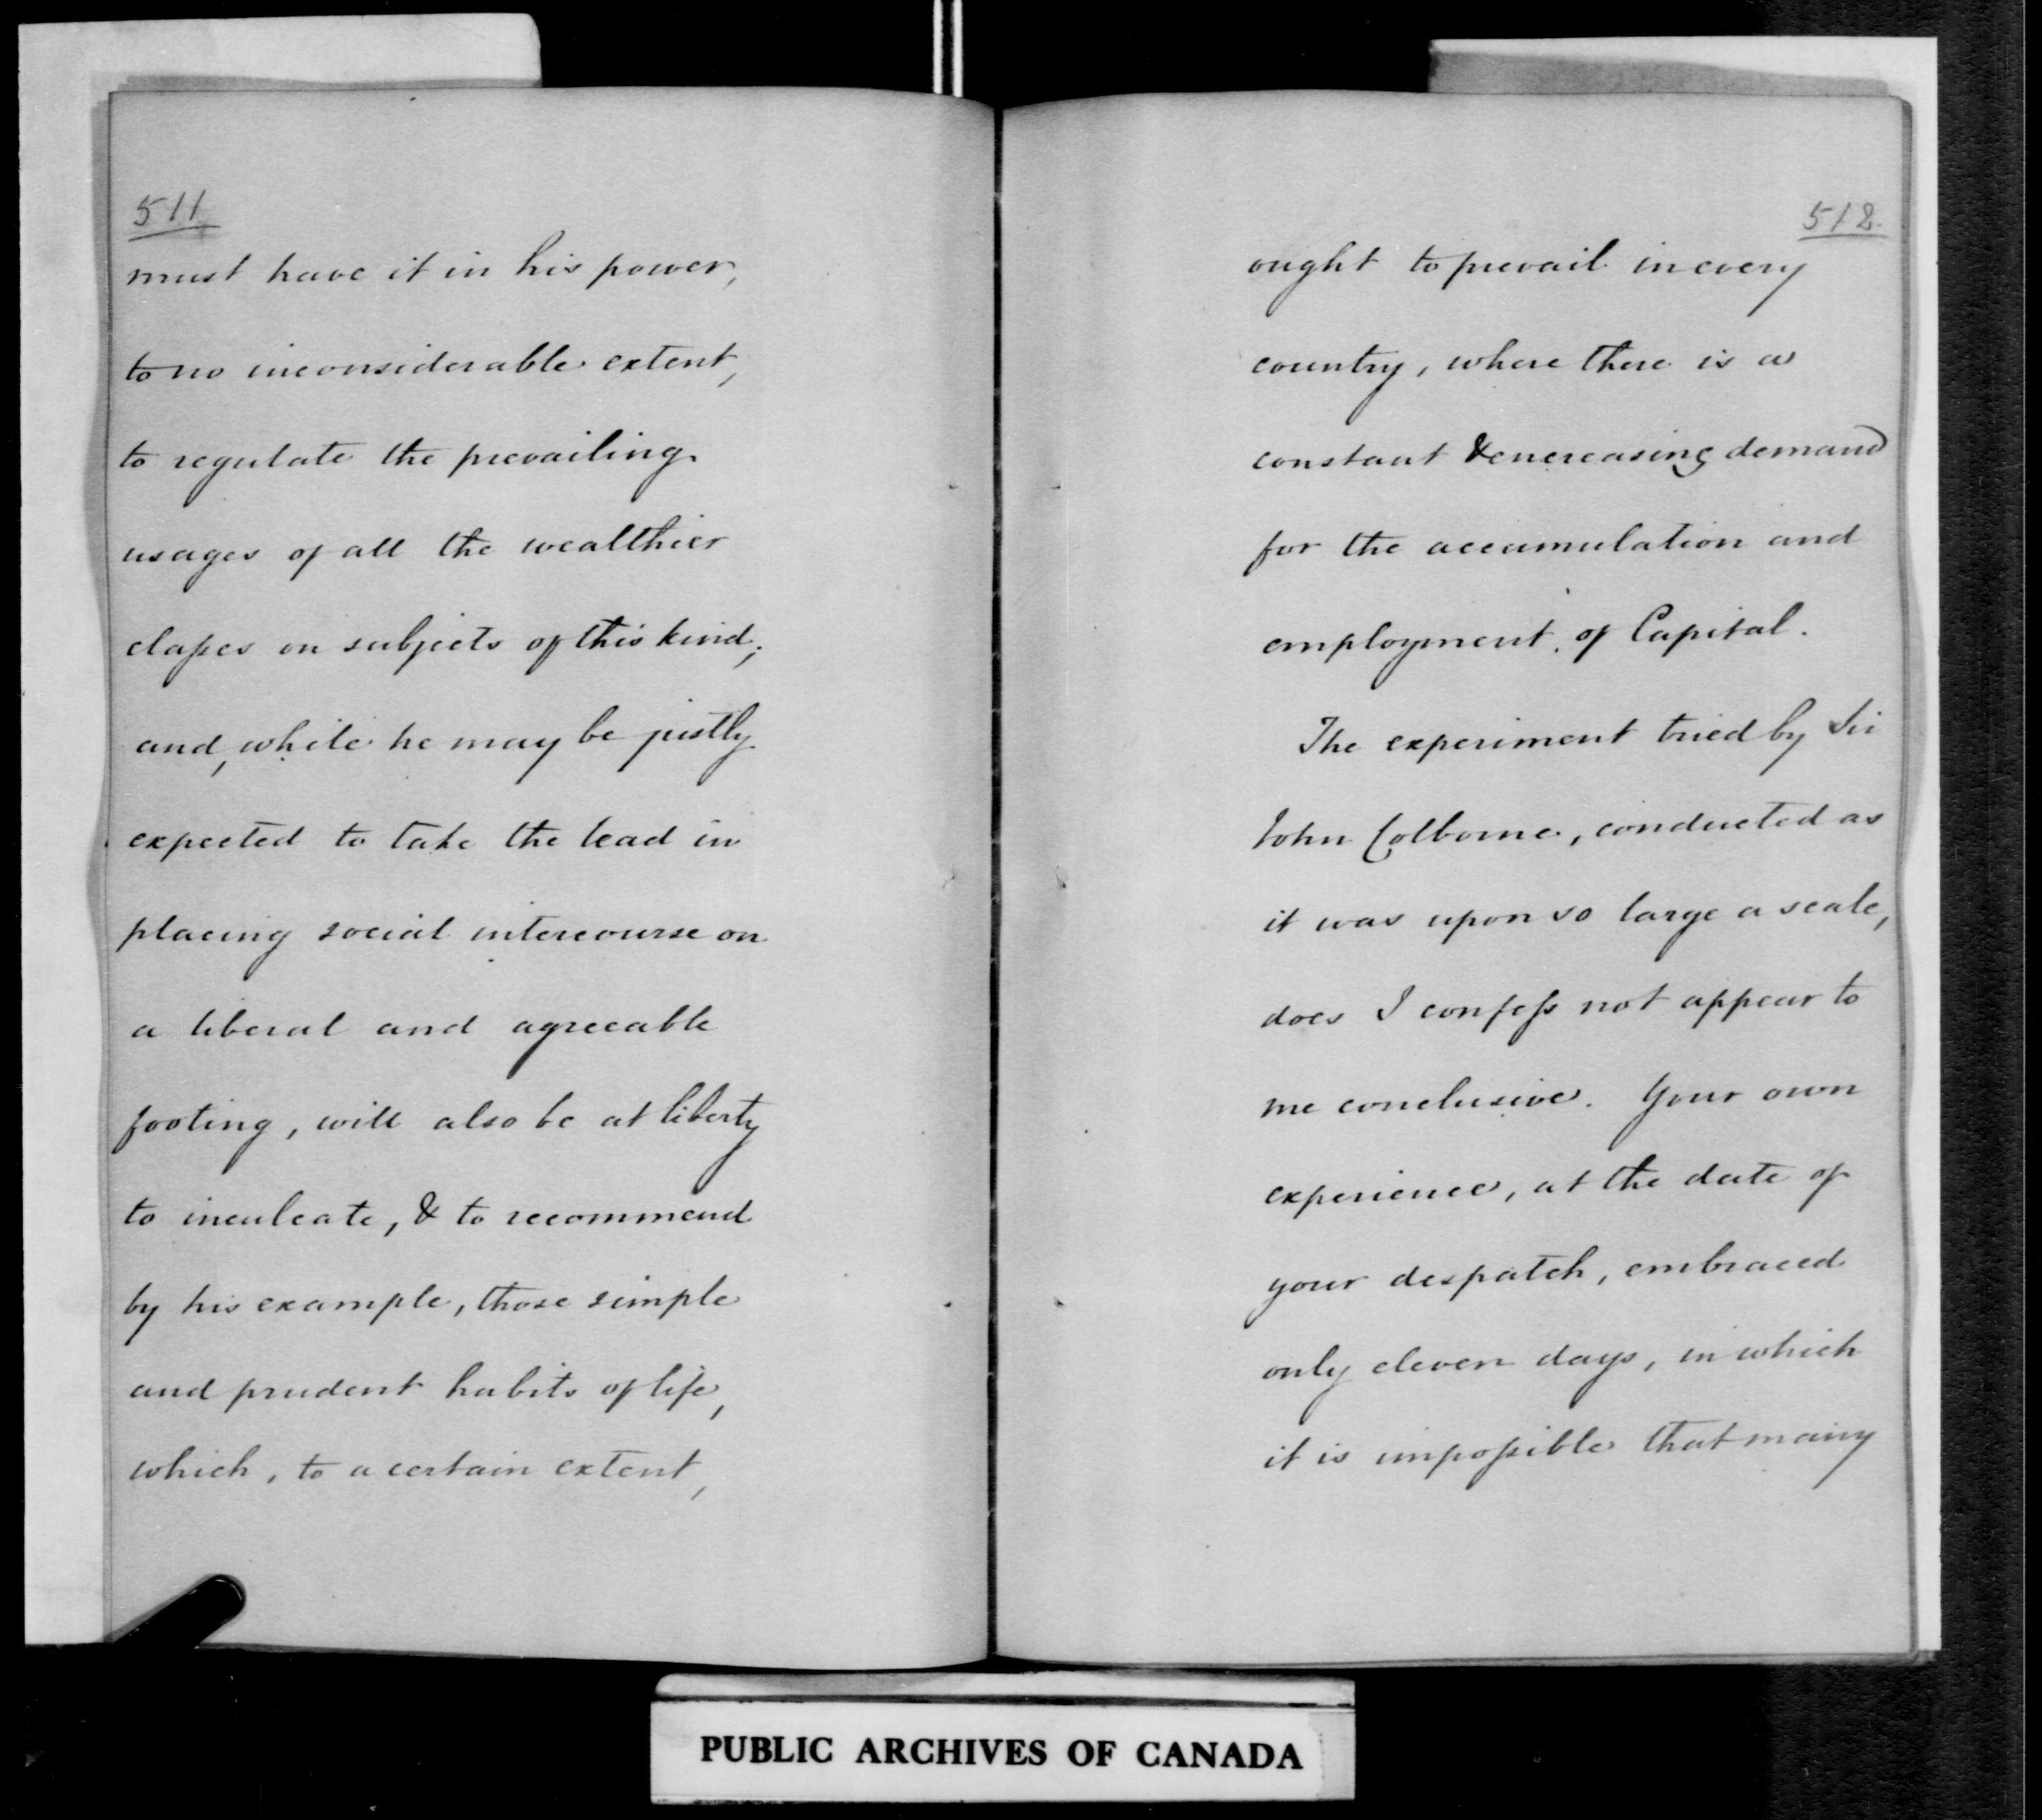 511
must have it in his power,
to no inconsiderable extent,
to regulate the prevailing
usages of all the wealthier
claſses on subjects of this kind;
and, while he may be justly
expected to take the lead in
placing social intercourse on
a liberal and agreeable
footing, will also be at liberty
to inculcate, & to recommend
by his example, those simple
and prudent habits of life,
which, to a certain extent,
512.
ought to prevail in every
country, where there is a
constant & encreasing demand
for the accumulation and
employment of Capital.
The experiment tried by Sir
John Colborne, conducted as
it was upon so large a scale,
does I confeſs not appear to
me conclusive. Your own
experience, at the date of
your despatch, embraced
only eleven days, in which
it is impoſsible that many
PUBLIC ARCHIVES OF CANADA